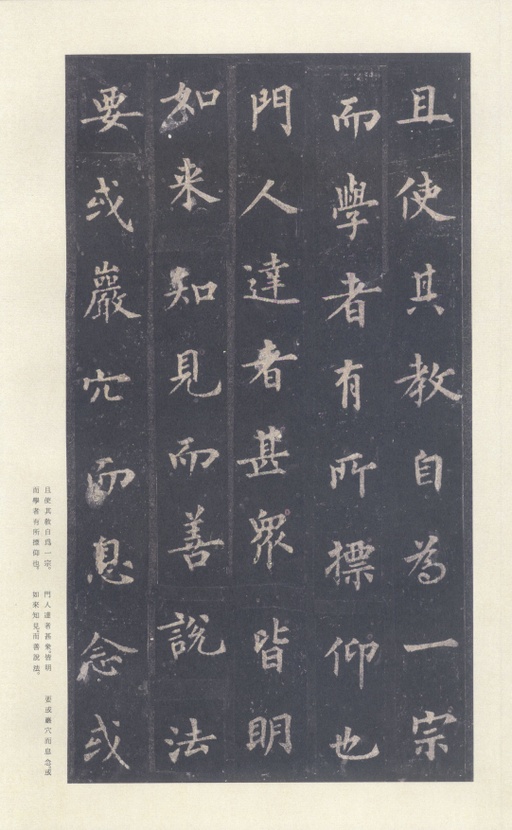 且使其教自為一宗
而學者有所標仰也
門人達者甚眾皆明
如来知見而善說法
要或巖穴而息念或
且使其教自爲一宗。
而學者有所標仰也。
門人達者甚衆，皆明
如來知見，而善說法。
要或巖穴而息念，或